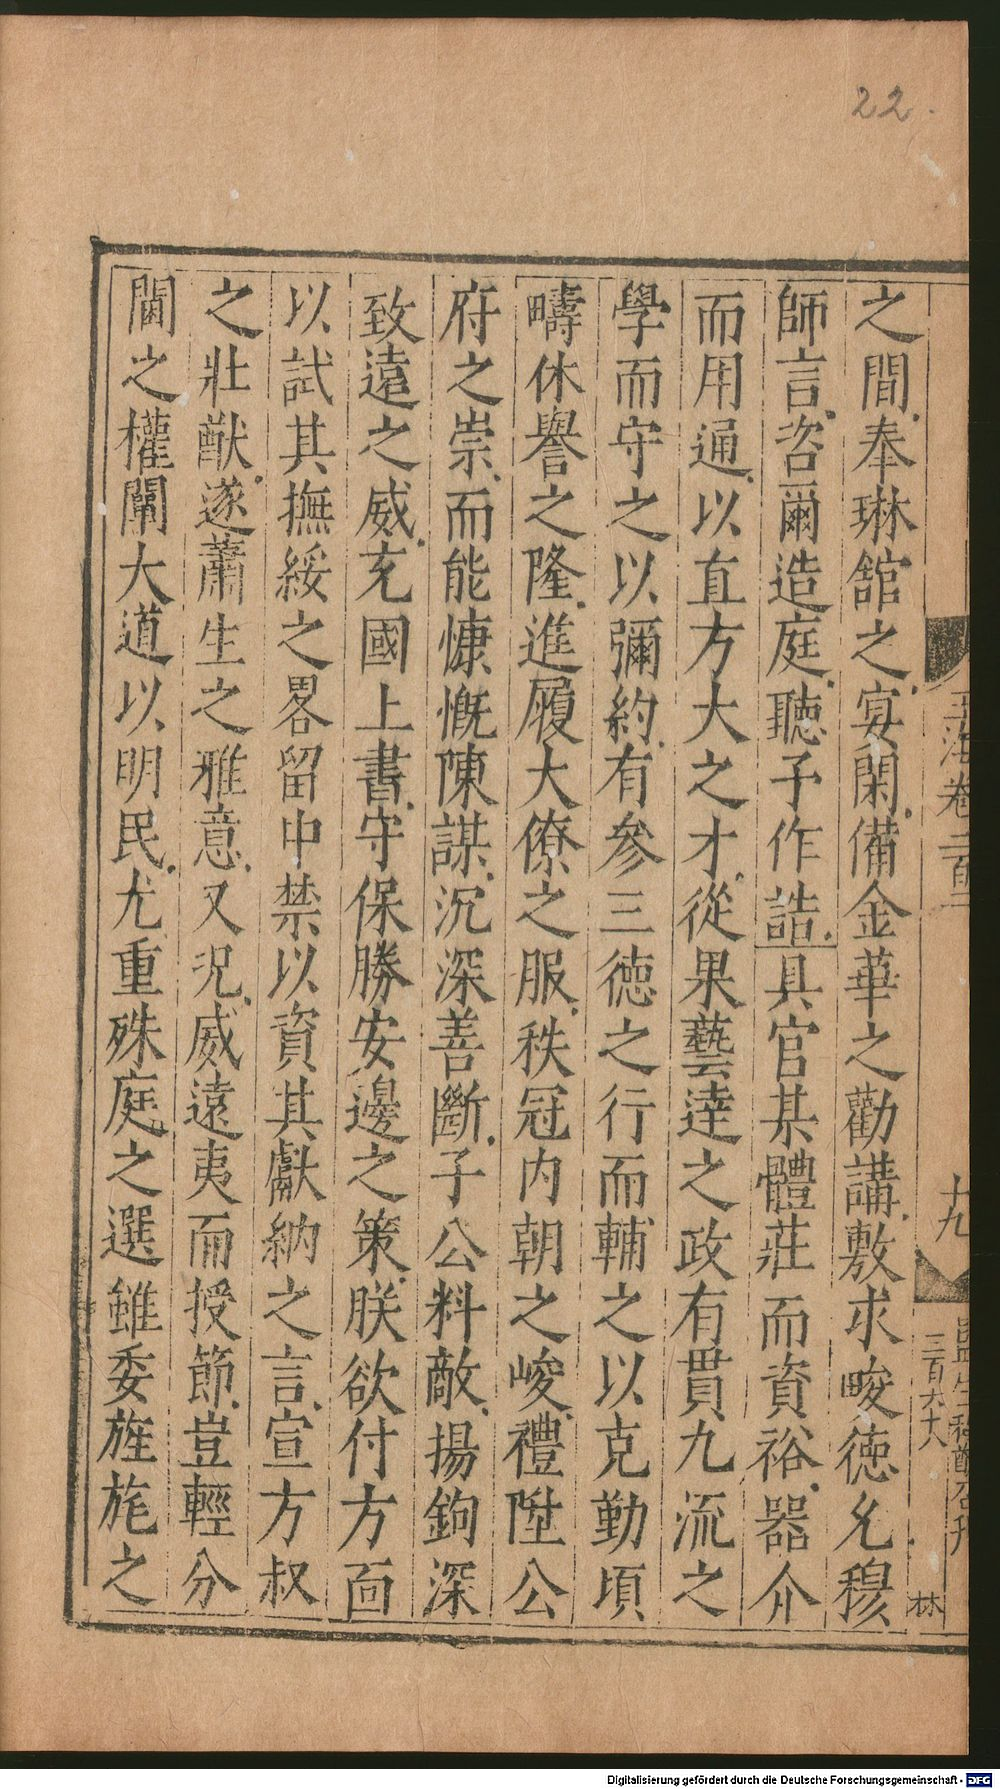 22.
玉海卷二百三
十九
三百六十八
林
之間奉琳舘之宴閑備金華之勸講敷求畯徳允穆
師言咨爾造庭聽予作誥具官某體莊而資裕器介
而用通以直方大之才從果藝逹之政有貫九流之
學而守之以彌約有參三徳之行而輔之以克勤頃
疇休譽之隆進履大僚之服秩冠内朝之峻禮陞公
府之崇而能慷慨陳謀沉深善斷子公料敵揚鉤深
致遠之威充國上書守保勝安邊之策朕欲付方靣
以試其撫綏之畧留中禁以資其獻納之言宣方叔
之壯猷遂蕭生之雅意又况威遠夷而授節豈輕分
閫之權闡大道以明民尤重殊庭之選雖委旌旄之
Digitalisierung gefördert durch die Deutsche Forschungsgemeinschaft - DFG